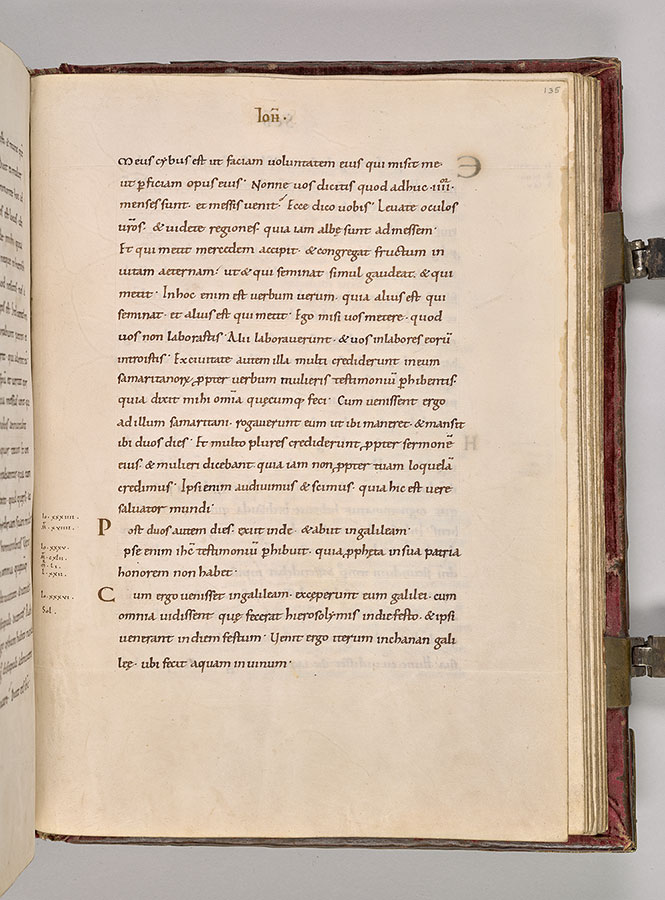 135
Ioh̄·
Meus cybus est ut faciam voluntatem eius qui misit me·
ut ꝑficiam opus eius· Nonne vos dicitis quod adhuc ·IIIIor·
menses sunt· et messis venit? Ecce dico vobis· Levate oculos
vr̄os· & videte regiones· quia iam albę sunt ad messem·
Et qui metit mercedem accipit· & congregat fructum in
vitam aeternam· ut & qui seminat simul gaudeat· & qui
metit· In hoc enim est verbum verum· quia alius est qui
seminat· et alius est qui metit· Ego misi vos metere· quod
vos non laborastis· Alii laboraverunt· & vos in labores eorū
introistis· Ex civitate autem illa multi crediderunt in eum
samaritanorꝝ ꝓpter verbum mulieris testimoniū ꝑhibentis·
quia dixit mihi om̄ia quęcumq; feci· Cum venissent ergo
ad illum samaritani· rogaverunt eum ut ibi maneret· & mansit
ibi duos dies· Et multo plures crediderunt ꝓpter sermonē
eius· & mulieri dicebant· quia iam non ꝓpter tuam loquelā
credimus· Ipsi enim audivimus & scimus· quia hic est vere
salvator mundi·
Post duos autem dies· exiit inde· & abiit in galileam·
pse enim ihc̄ testimoniū ꝑhibuit· quia ꝓpheta in sua patria
honorem non habet·
Cum ergo venisset in galileam· excęperunt eum galilei· cum
omnia vidissent quę fecerat hierosolymis in die festo· & ipsi
venerant in diem festum· Venit ergo iterum in chanan gali
lęę· ubi fecit aquam in vinum·
Io. XXXIIII.
Io. XXXV.
Io. XXXVI.
Sol.